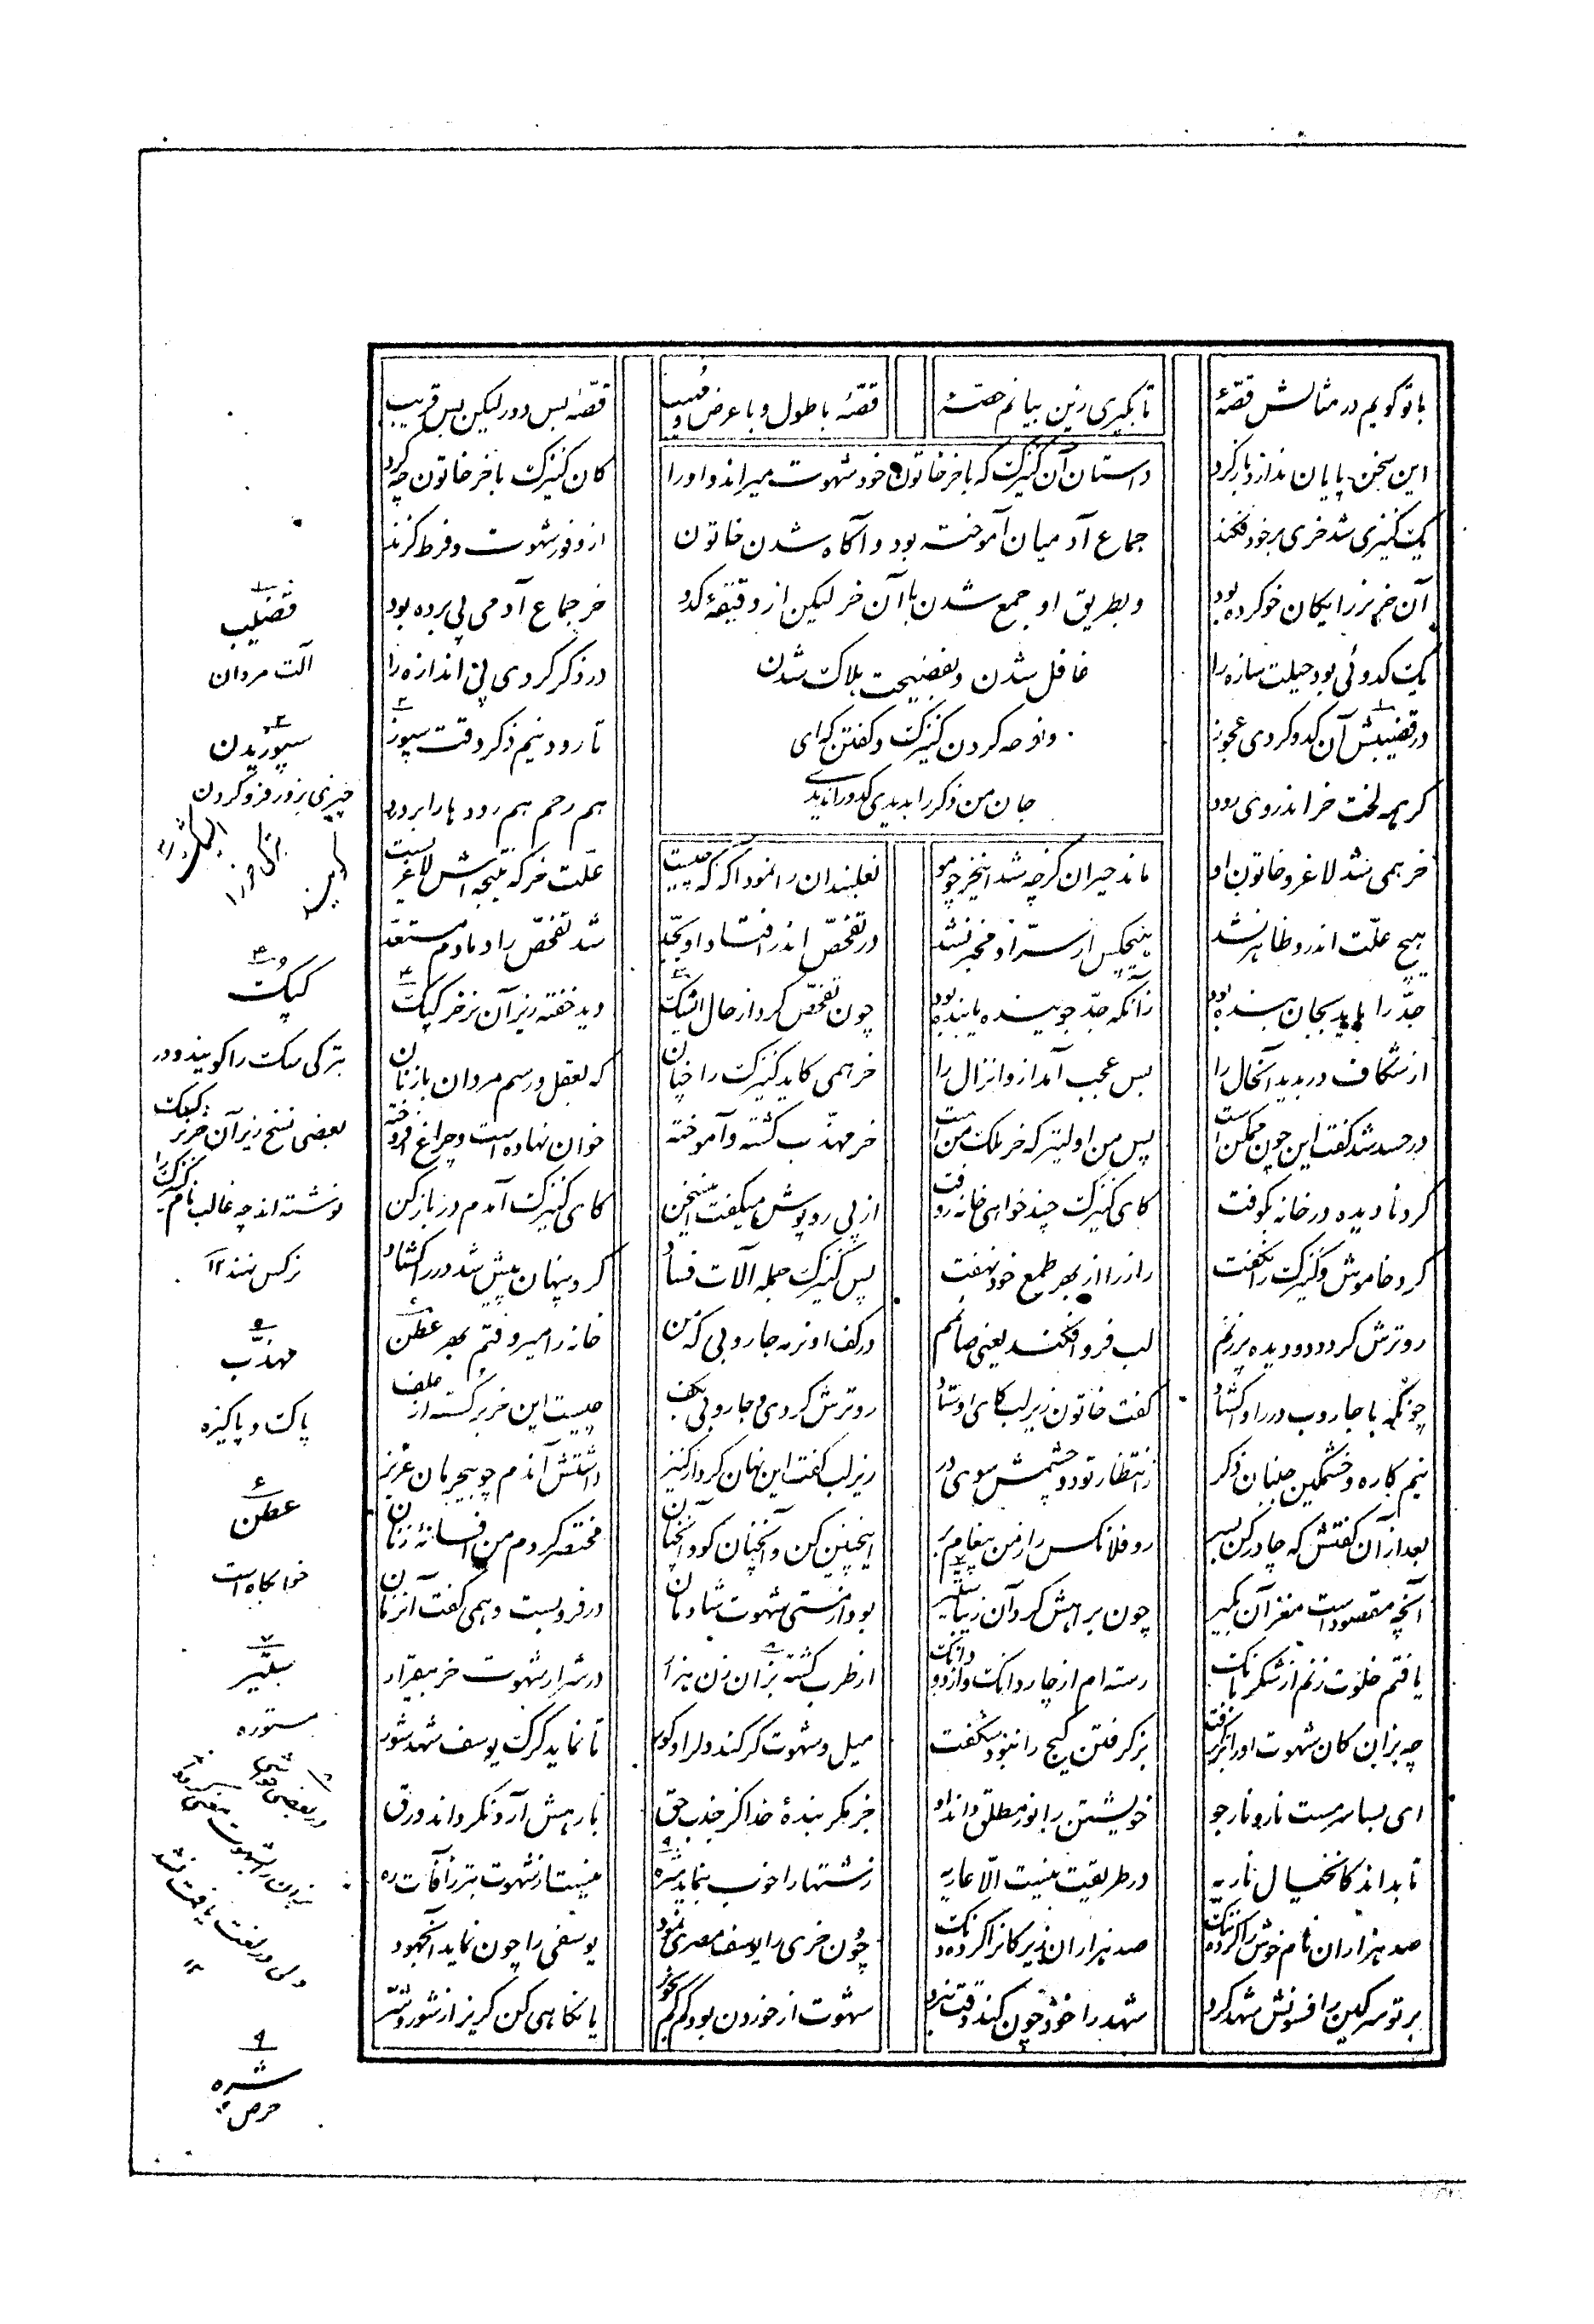 با تو گویم در مثالش قصّهٔ تا بگیری زین بیانم حصّهٔ قصّهٔ با طول و با عرض و مهیب قصّهٔ بس دور لیکن بس قریب
داستان آن کنیزک که با خر خاتون خود شهوت میراند و او را
جماع آدمیان آموخته بود و آگاه شدن خاتون
و بطریق او جمع شدن با آن خر لیکن از دقیقهٔ کدو
غافل شدن و بفضیحت هلاک شدن
و نوحه کردن کنیزک و گفتن که ای
جان من ذکر را بدیدی کدو را ندیدی
این سخن پایان ندارد باز گرد کان کنیزک با خر خاتون چه کرد
یک کنیزی شد خری بر خود فکند از وفور شهوت و فرط گزند
آن خر نر را بکان خو کرده بود خر جماع آدمی پی برده بود
یک کدوئی بود حیلت سازه را در ذکر کردی پی اندازه را
در قضیبش آن کدو کردی عجوز تا رود نیم ذکر وقت سپوز
گر همه لخت خر اندر وی رود هم رحم هم روده‌ها را بردرد
خر همی شد لاغر و خاتون او ماند حیران کز چه شد این خر چو مو نعلبندان را نمود آنکه که چیست علّت خر که نتیجه‌اش لاغریست
هیچ علّت اندرو ظاهر نشد هیچکس از سرّ او مخبر نشد در تفحّص اندر افتاد او بجد شد تفحّص را دمادم مستعد
جدّ را باید بجان بنده بود زانکه جدّ جوینده یابنده بود چون تفحّص کرد از حال اشک دید خفته زیر آن نر خر کپک
از شکاف در بدید آنحال را بس عجب آمد ازو آنزال را خر همی گاید کنیزک را چنان که بعقل و رسم مردان با زنان
در حسد شد گفت این چون ممکن است پس من اولیتر که خر ملک من است خر مهذّب گشته و آموخته خوان نهاده است و چراغ افروخته
کرد نادیده در خانه بکوفت کای کنیزک چند خواهی خانه رفت از پی روپوش میگفت اینسخن کای کنیزک آمدم در باز کن
کرد خاموش و کنیزک را نگفت راز را از بهر طمع خود نهفت پس کنیزک جمله آلات فساد کرد پنهان پیش شد در را گشاد
رو ترش کرد و دو دیده پر ز نم لب فرو افکند یعنی صائمم در کف او نرمه جاروبی که من خانه را میروفتم بهر عطن
چونکه با جاروب در را وا گشاد گفت خاتون زیر لب کای اوستاد رو ترش کردی و جاروبی بکف چیست این خر برگسته از علف
نیم کاره و خشمگین جنبان ذکر ز انتظار تو دو چشمش سوی در زیر لب گفت این نهان کرد از کنیز داشتش آندم چو بیجرمان عزیز
بعد از آن گفتش که چادر کن بسر رو فلانکس را ز من پیغام بر اینچنین کن و آنچنان گو و آنچنان مختصر کردم من افسانهٔ زنان
آنچه مقصود است مغز آن بگیر چون براهش کرد آن زیبا ستیر بود از مستی شهوت شادمان در فرو بست و همی گفت آنزمان
یافتم خلوت زنم از شکر بانگ رسته‌ام از چار دانگ و از دو دانگ از طرب گشته بزان زن هزار در شرار شهوت خر بیقرار
چه بزان کان شهوت او را بز گرفت بز گرفتن گیج را نبود شگفت میل و شهوت کر کند دل را و کور تا نماید گرگ یوسف شهد شور
ای بسا سرمست نار و نار جو خویشتن را نور مطلق داند او جز مگر بندهٔ خدا کز جذب حق با رهش آرد نگرداند ورق
تا بداند کانخیال ناریه در طریقت نیست الّا عاریه زشتها را خوب بنماید شره نیست از شهوت بتر ز آفات ره
صد هزاران نام خوش را کرده ننگ صد هزاران زیرکان را کرده دنگ چون خری را یوسف مصری نمود یوسفی را چون نماید آنجهود
بر تو سرگین را فسونش شهد کرد شهد را خود چون کند وقت نبرد شهوت از خوردن بود کم کم بخور یا نکاحی کن گریز از شور و شر
۱
قضیب
آلت مردان
۲
سپوزیدن
چیزی بزور فرو کردن
۴
کپک
بترکی سگ را گویند و در
بعضی نسخ زیر آن خر نر
نوشته‌اند چه غالب نام کنیزک را
نرگس نهند ۱۲
۵
مهذّب
پاک و پاکیزه
۶
عطن
خوابگاه است
۷
ستیر
مستوره
۸
۹
شره
حرص